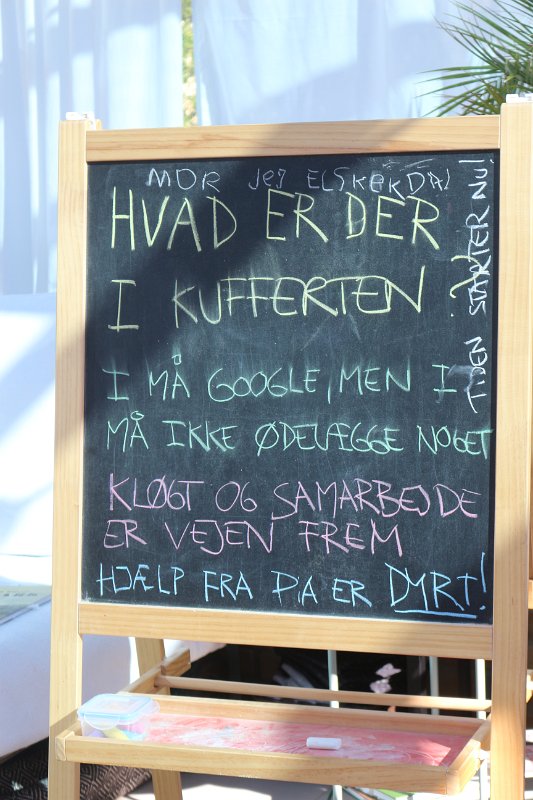 MOR JEG ELSKER DA!
HVAD ER DER
I KUFFERTEN ?
I MÅ GOOGLE, MEN I
MÅ IKKE ØDELÆGGE NOGET
KLØGT OG SAMARBEJDE
ER VEJEN FREM
HJÆLP FRA DA ER DYRT!
TIDEN STARTER NU!